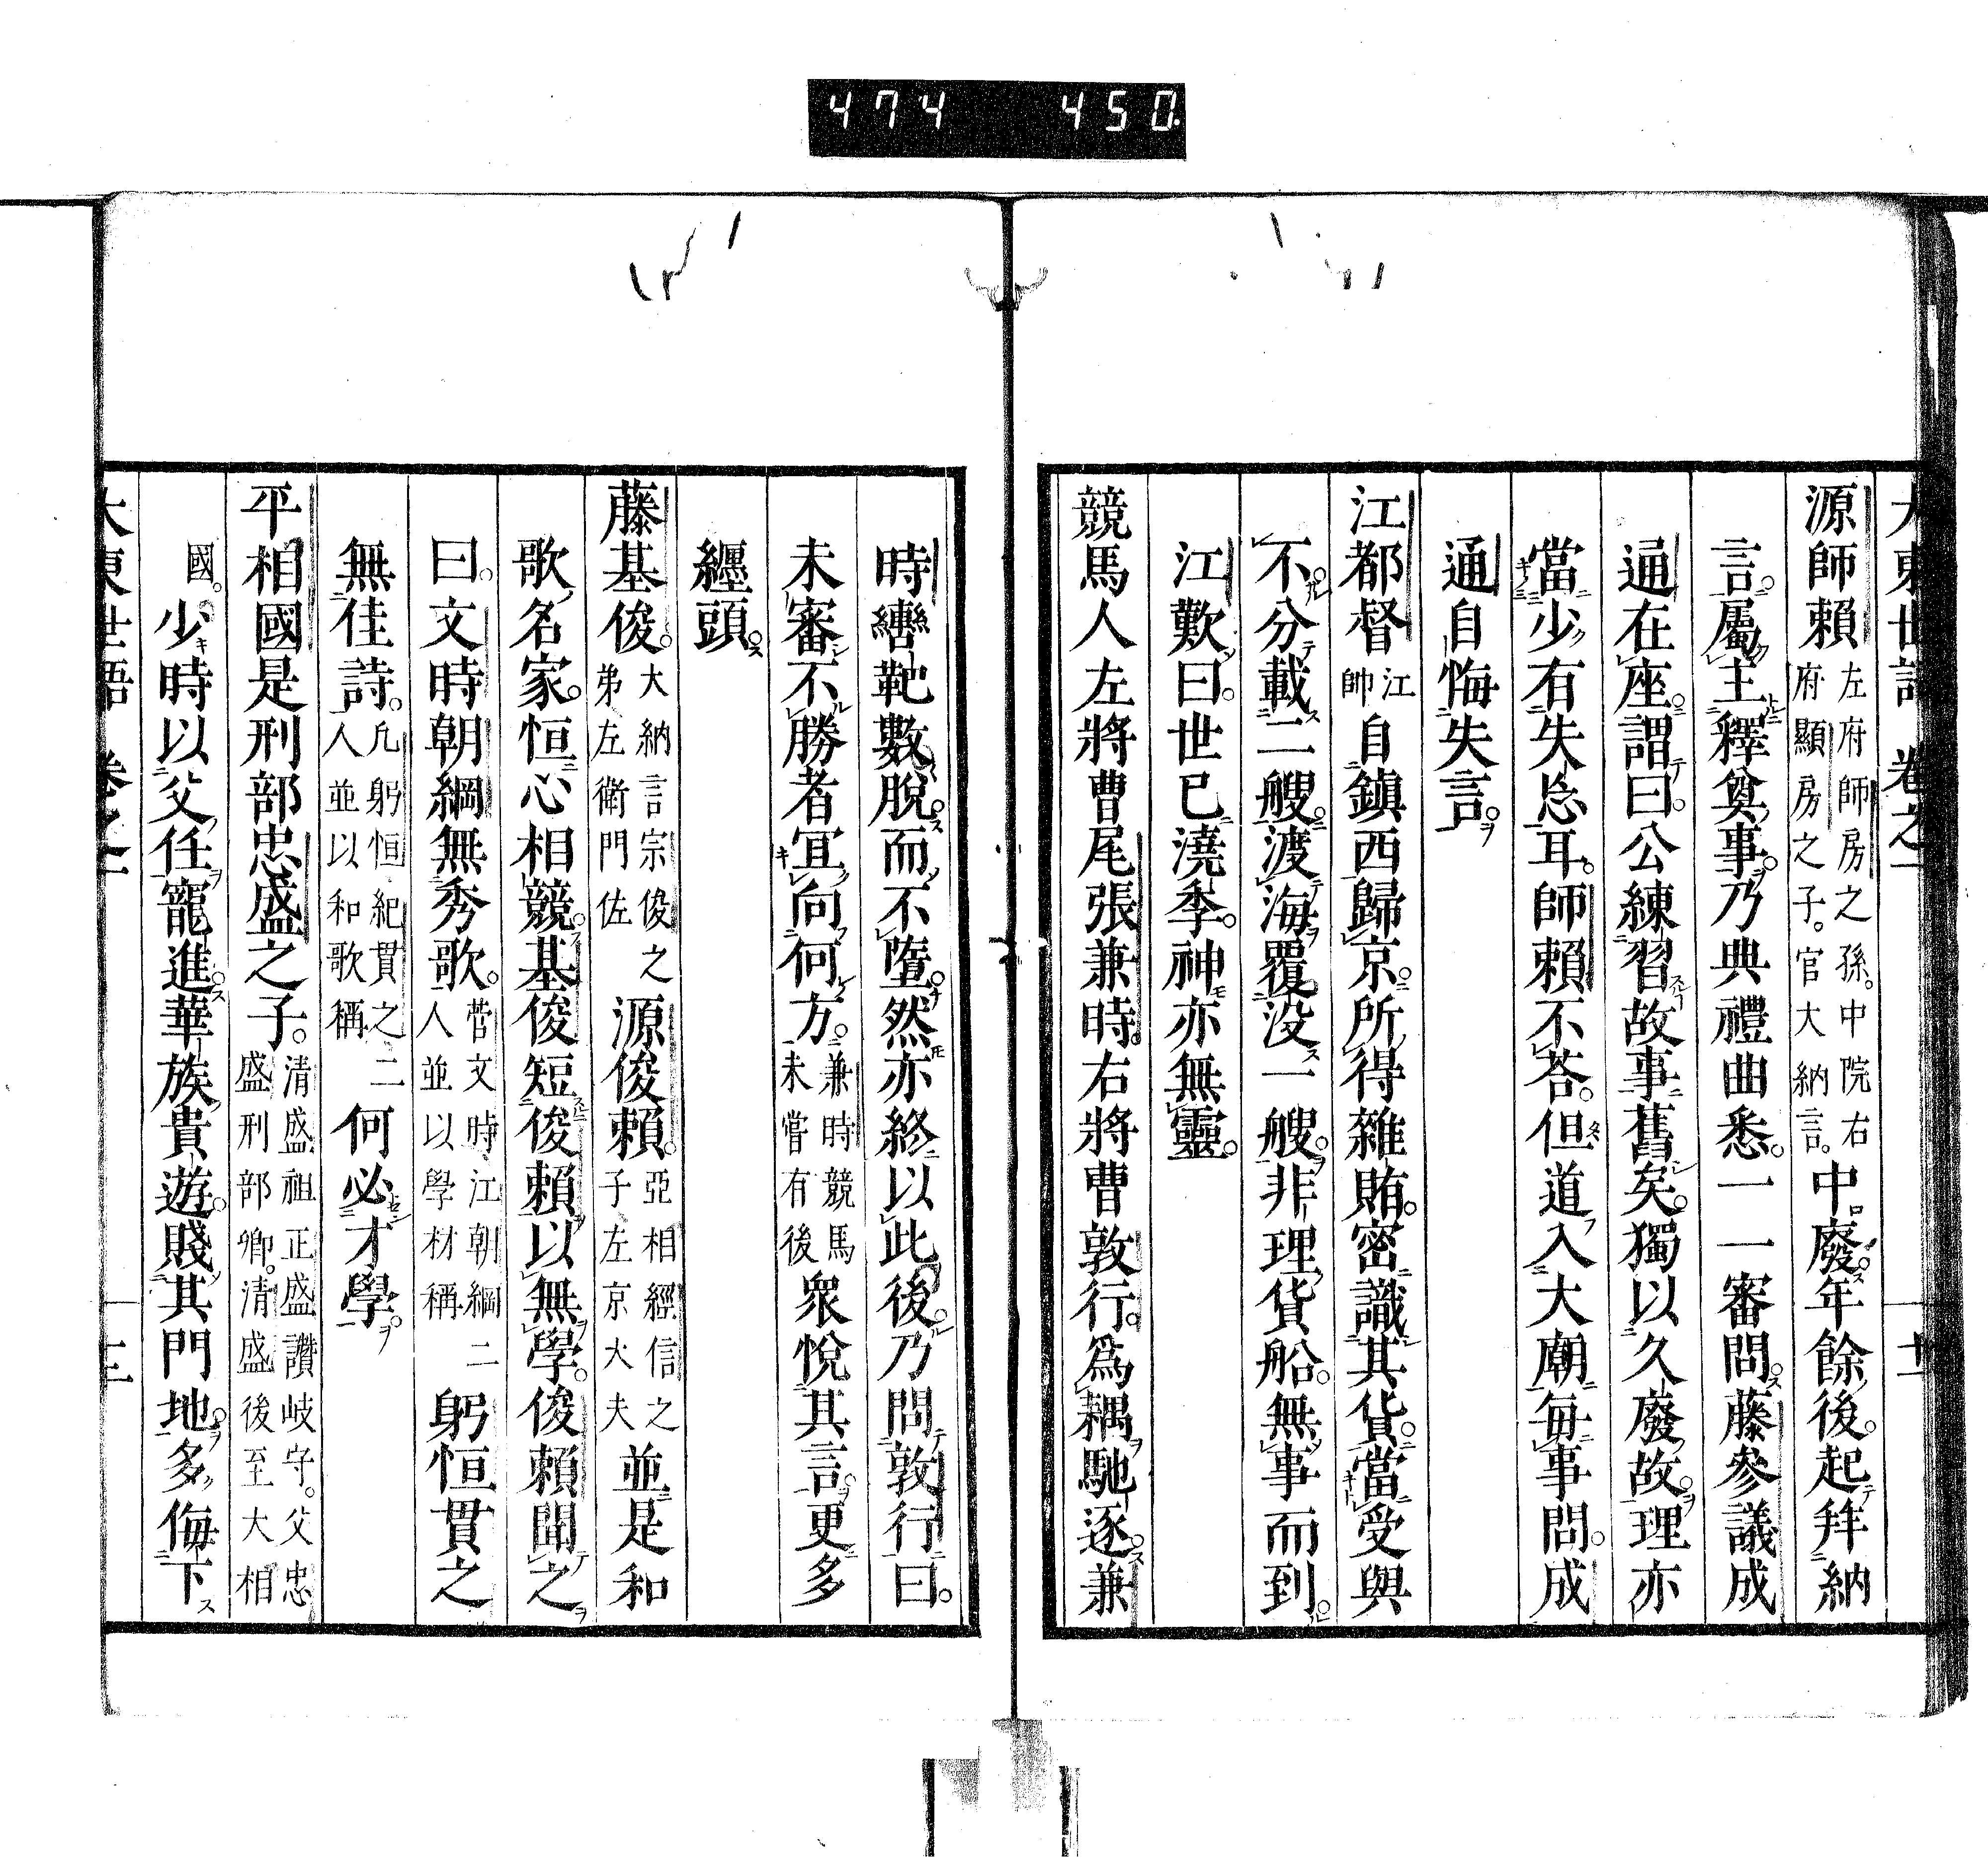 474 450
大東世語 卷之一 十二
源師賴左府師房之孫。中院右府顯房之子。官大納言。中廢年餘後。起拜納
言。屬主釋奠事。乃典禮曲悉。一一審問。藤參議成
通在座。謂曰。公練習故事舊矣。獨以久廢故。理亦
當少有失忘耳。師賴不荅。但道入大廟每事問。成
通自悔失言。
江都督江帥自鎮西歸京。所得雜賄。密識其貨。當受與
不。分載二艘。渡海覆没一艘。非理貨船。無事而到。
江歎曰。世已澆季。神亦無靈。
競馬人左將曹尾張兼時。右將曹敦行。爲耦馳逐。兼
時轡靶數脫。而不墮。然亦終以此後。乃問敦行曰。
未審不勝者冝向何方。兼時競馬未嘗有後衆悅其言更多
纏頭。
藤基俊。大納言宗俊之弟左衛門佐源俊賴。亞相經信之子左京大夫並是和
歌名家。恒心相競。基俊短俊賴以無學。俊賴聞之
曰。文時朝綱無秀歌。菅文時江朝綱二人並以學材稱躬恒貫之
無佳詩。凡躬恒紀貫之二人並以和歌稱何必才學。
平相國是刑部忠盛之子。清盛祖正盛讚岐守。父忠盛刑部卿。清盛後至大相
國。少時以父任寵進。華族貴遊。賤其門地。多侮下
大東世語 卷之一 十三